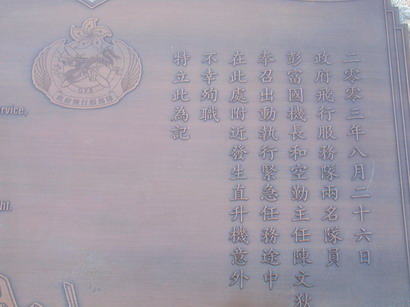 二零零三年八月二十六日
政府飛行服務隊兩名隊員
彭富國機長和空勤主任陳文狄
奉召出動執行緊急任務途中
在此處附近發生直升機意外
不幸殉職
特立此為記
GFS
政府飛行服務隊
ervice,